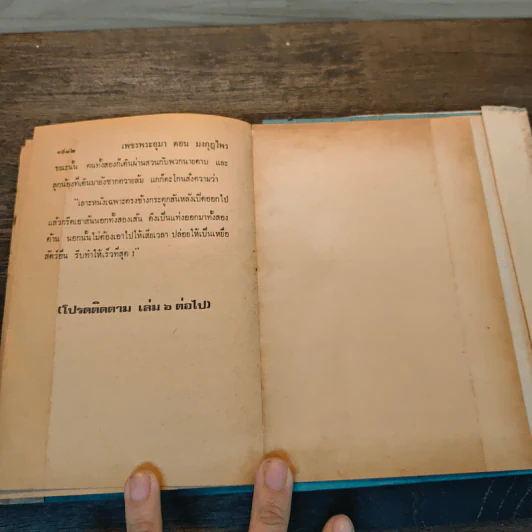 ๑๔๘๒ เพชรพระอุมา ตอน มงกุฎไพร
ขณะนั้น คนทั้งสองก็เดินผ่านสวนกับพวกนายคาบ และ
ลูกน้องที่เดินมายังซากควายล้ม แกก็ตะโกนสั่งความว่า
"เลาะหนังเฉพาะตรงข้างกระดูกสันหลังเปิดออกไป
แล้วกรีดเอาสันนอกทั้งสองเส้น ดึงเป็นแท่งออกมาทั้งสอง
ด้าน นอกนั้นไม่ต้องเอาไปให้เสียเวลา ปล่อยให้เป็นเหยื่อ
สัตว์อื่น รีบทำให้เร็วที่สุด !"
(โปรดติดตาม เล่ม ๖ ต่อไป)